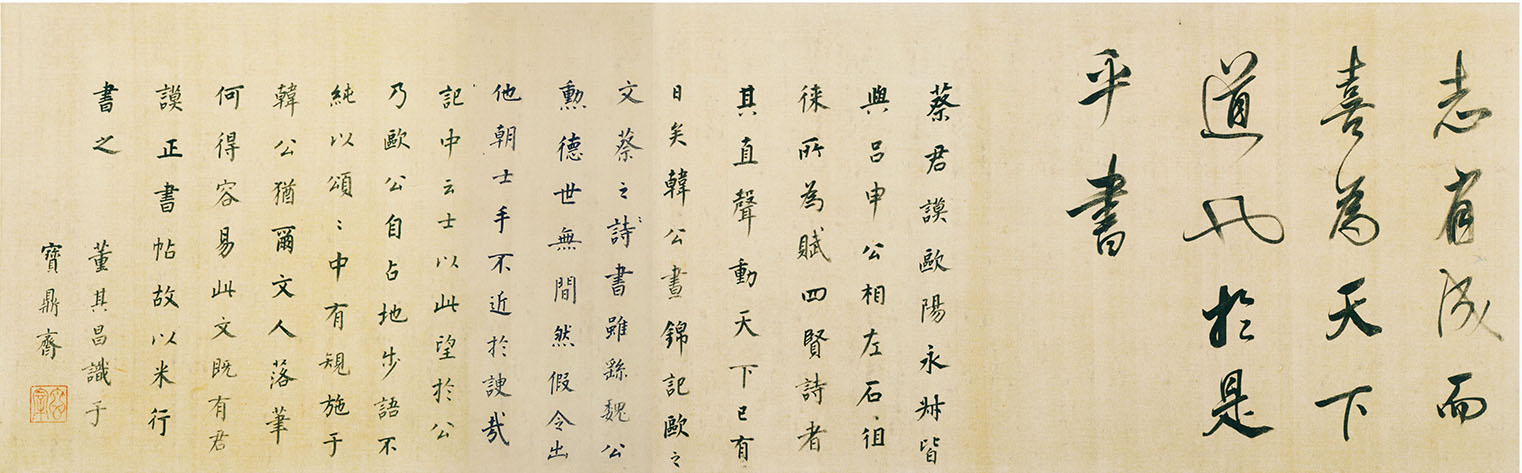 志有成而
喜為天下
道也於是
乎書
蔡君謨歐陽永叔皆
與呂申公相左石徂
徠所為賦四賢詩者
其直聲動天下已有
日矣韓公晝錦記歐之
文蔡之詩書雖繇魏公
勲德世無間然假令出
他朝士手不近於諛哉
記中云士以此望於公
乃歐公自占地步語不
純以頌〻中有規施于
韓公猶爾文人落筆
何得容易此文既有君
謨正書帖故以米行
書之
董其昌識于
寶鼎齋